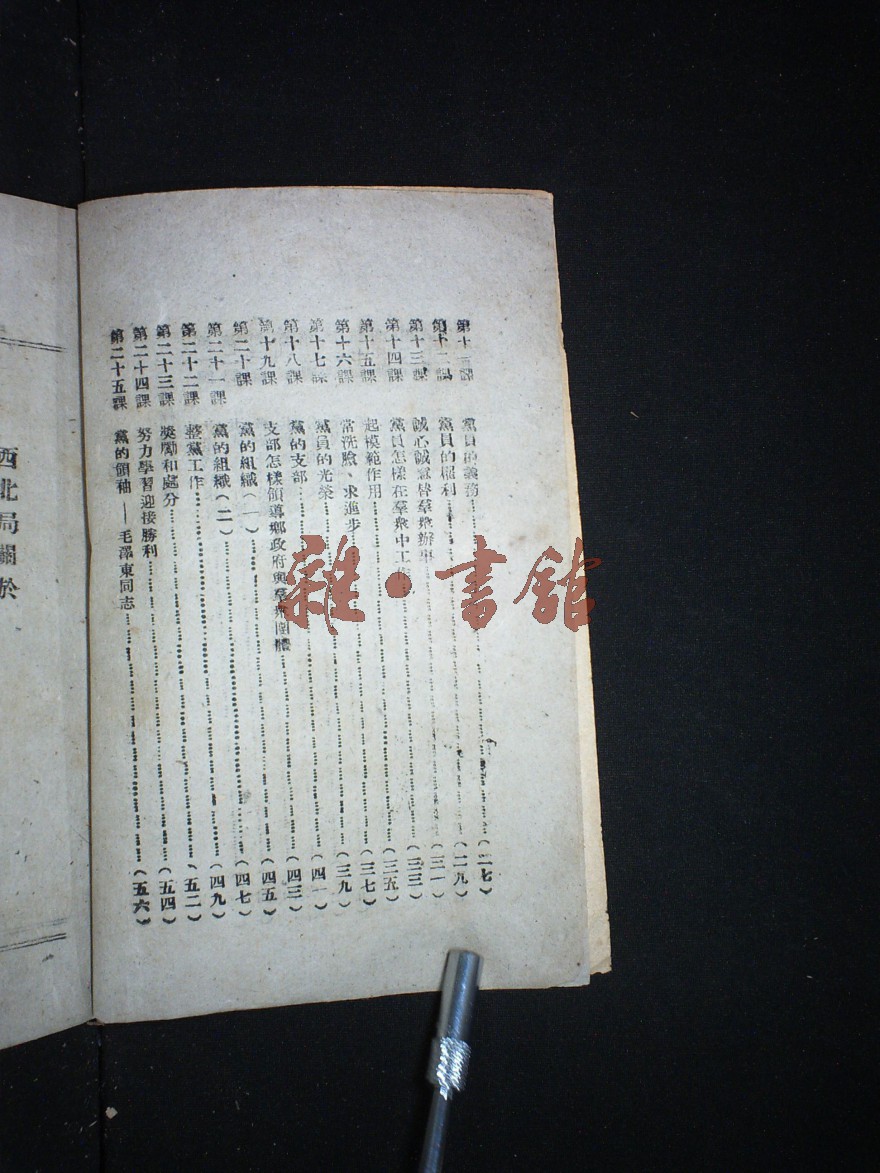 第十一課 黨員的義務……(二七)
第十二課 黨員的權利……(二九)
第十三課 誠心誠意替羣衆辦事……(三一)
第十四課 黨員怎樣在羣衆中工作……(三三)
第十五課 起模範作用……(三五)
第十六課 常洗臉、求進步……(三七)
第十七課 黨員的光榮……(三九)
第十八課 黨的支部……(四一)
第十九課 支部怎樣領導鄉政府與羣衆團體……(四三)
第二十課 黨的組織(一)……(四五)
第二十一課 黨的組織(二)……(四七)
第二十二課 整黨工作……(四九)
第二十三課 獎勵和處分……(五二)
第二十四課 努力學習迎接勝利……(五四)
第二十五課 黨的領袖——毛澤東同志……(五六)
西北局關於
雜·書館